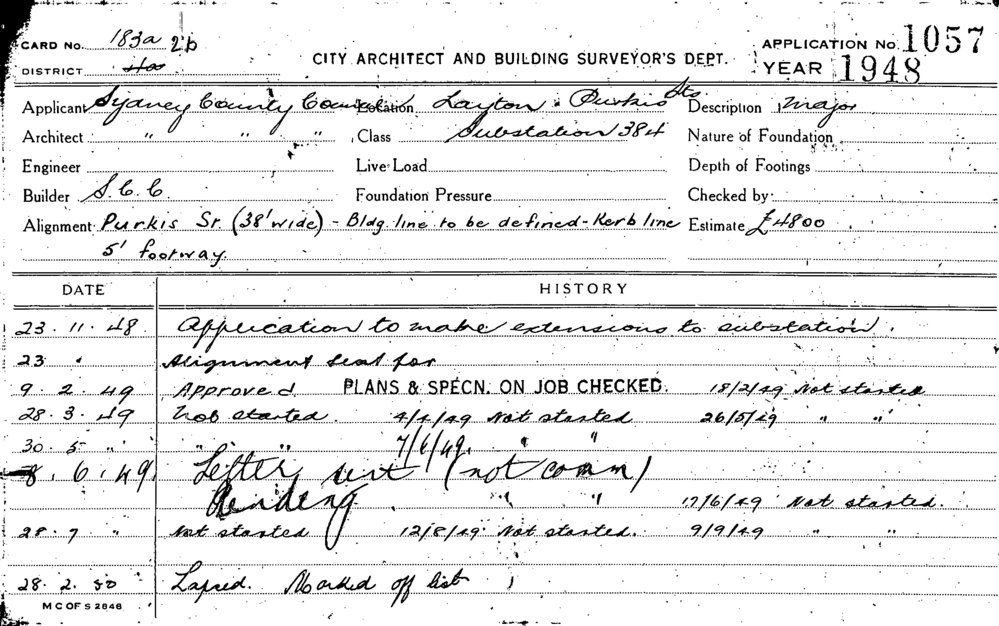 CARD No. 183a 2b
CITY ARCHITECT AND BUILDING SURVEYOR'S DEPT.
APPLICATION No. 1057
DISTRICT
YEAR 1948
Applicant Sydney County Council Location Layton & Purkis Sts Description Major
Architect " " " Class Substation 384 Nature of Foundation
Engineer Live Load Depth of Footings
Builder S.C.C Foundation Pressure Checked by
Alignment Purkis St. (38' wide) - Bldg. line to be defined - Kerb line Estimate £4800
5' footway.
DATE HISTORY
23. 11. 48. Application to make extensions to substation.
23 " Alignment seat for
9. 2. 49 Approved. PLANS & SPECN. ON JOB CHECKED. 18/2/49 Not started
28. 3. 49 Not started 4/4/49 Not started 26/5/49 " "
30. 5 " " " 7/6/49. " "
8. 6. 49. Letter sent (not comm)
Pending " " 17/6/49 Not started.
28. 7 " Not started 12/8/49 Not started. 9/9/49 " "
28. 2. 50 Lapsed. Marked off list
M C OF S 2846